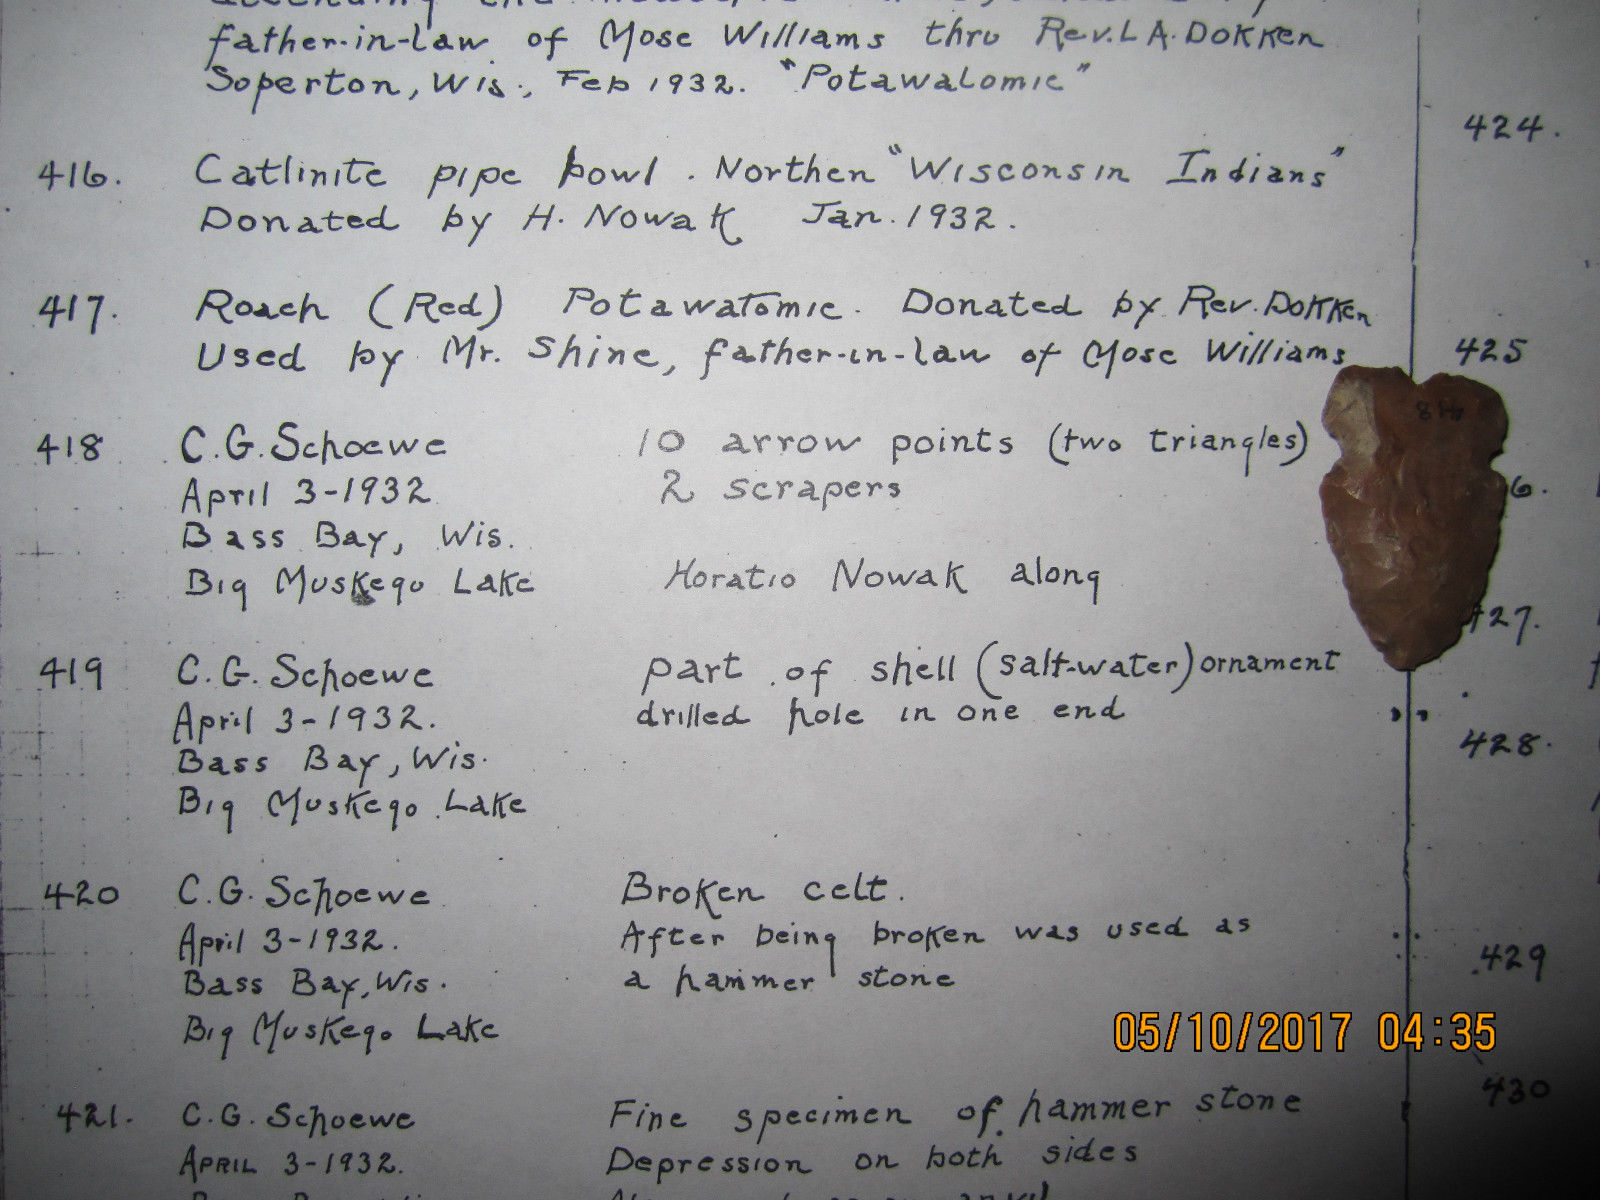 father-in-law of Mose Williams thru Rev. L A. Dokken
Soperton, Wis., Feb 1932. "Potawalomie"
416. Catlinite pipe bowl. Northen "Wisconsin Indians"
Donated by H. Nowak Jan. 1932.
417. Roach (Red) Potawatomie. Donated by Rev. Dokken
Used by Mr. Shine, father-in-law of Mose Williams
418 C.G. Schoewe 10 arrow points (two triangles)
April 3-1932 2 scrapers
Bass Bay, Wis.
Big Muskego Lake Horatio Nowak along
419 C.G. Schoewe part of shell (salt-water) ornament
April 3-1932. drilled hole in one end
Bass Bay, Wis.
Big Muskego Lake
420 C.G. Schoewe Broken celt.
April 3-1932. After being broken was used as
Bass Bay, Wis. a hammer stone
Big Muskego Lake
421. C.G. Schoewe Fine specimen of hammer stone
April 3-1932. Depression on both sides
424.
425
418
6.
427.
428.
429
430
05/10/2017 04:35